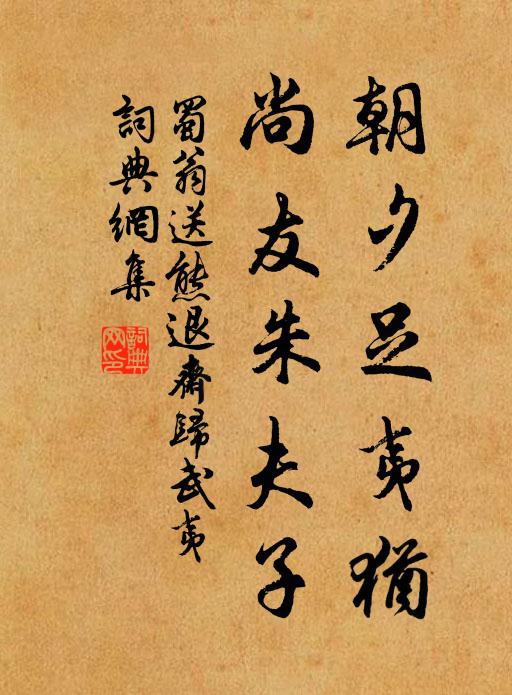 朝夕足夷猶
尚友朱夫子
蜀翁送熊退齋歸武夷
詞典網集
詞典
网印